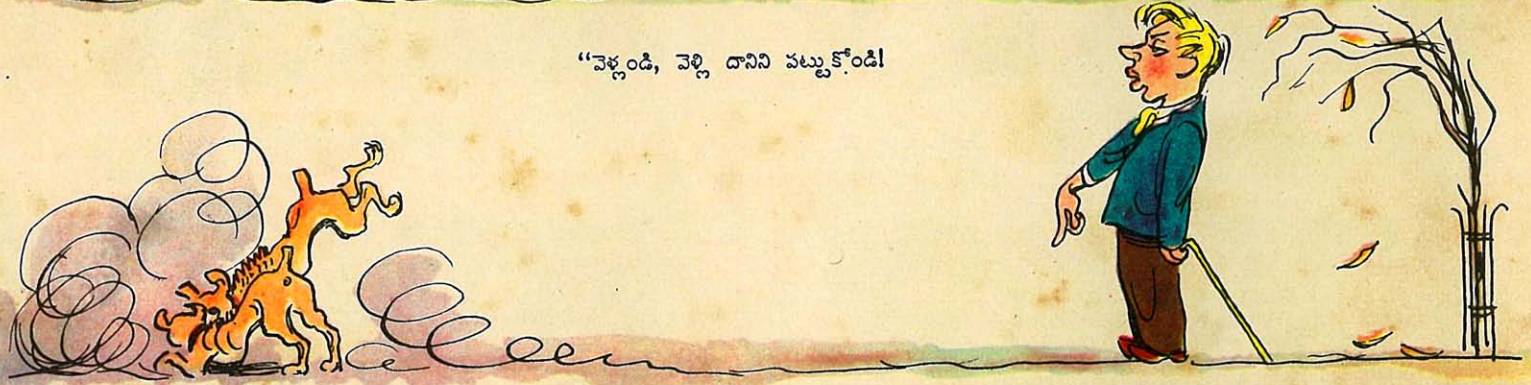 “వెళ్లండి, వెళ్లి దానిని పట్టుకోండి!